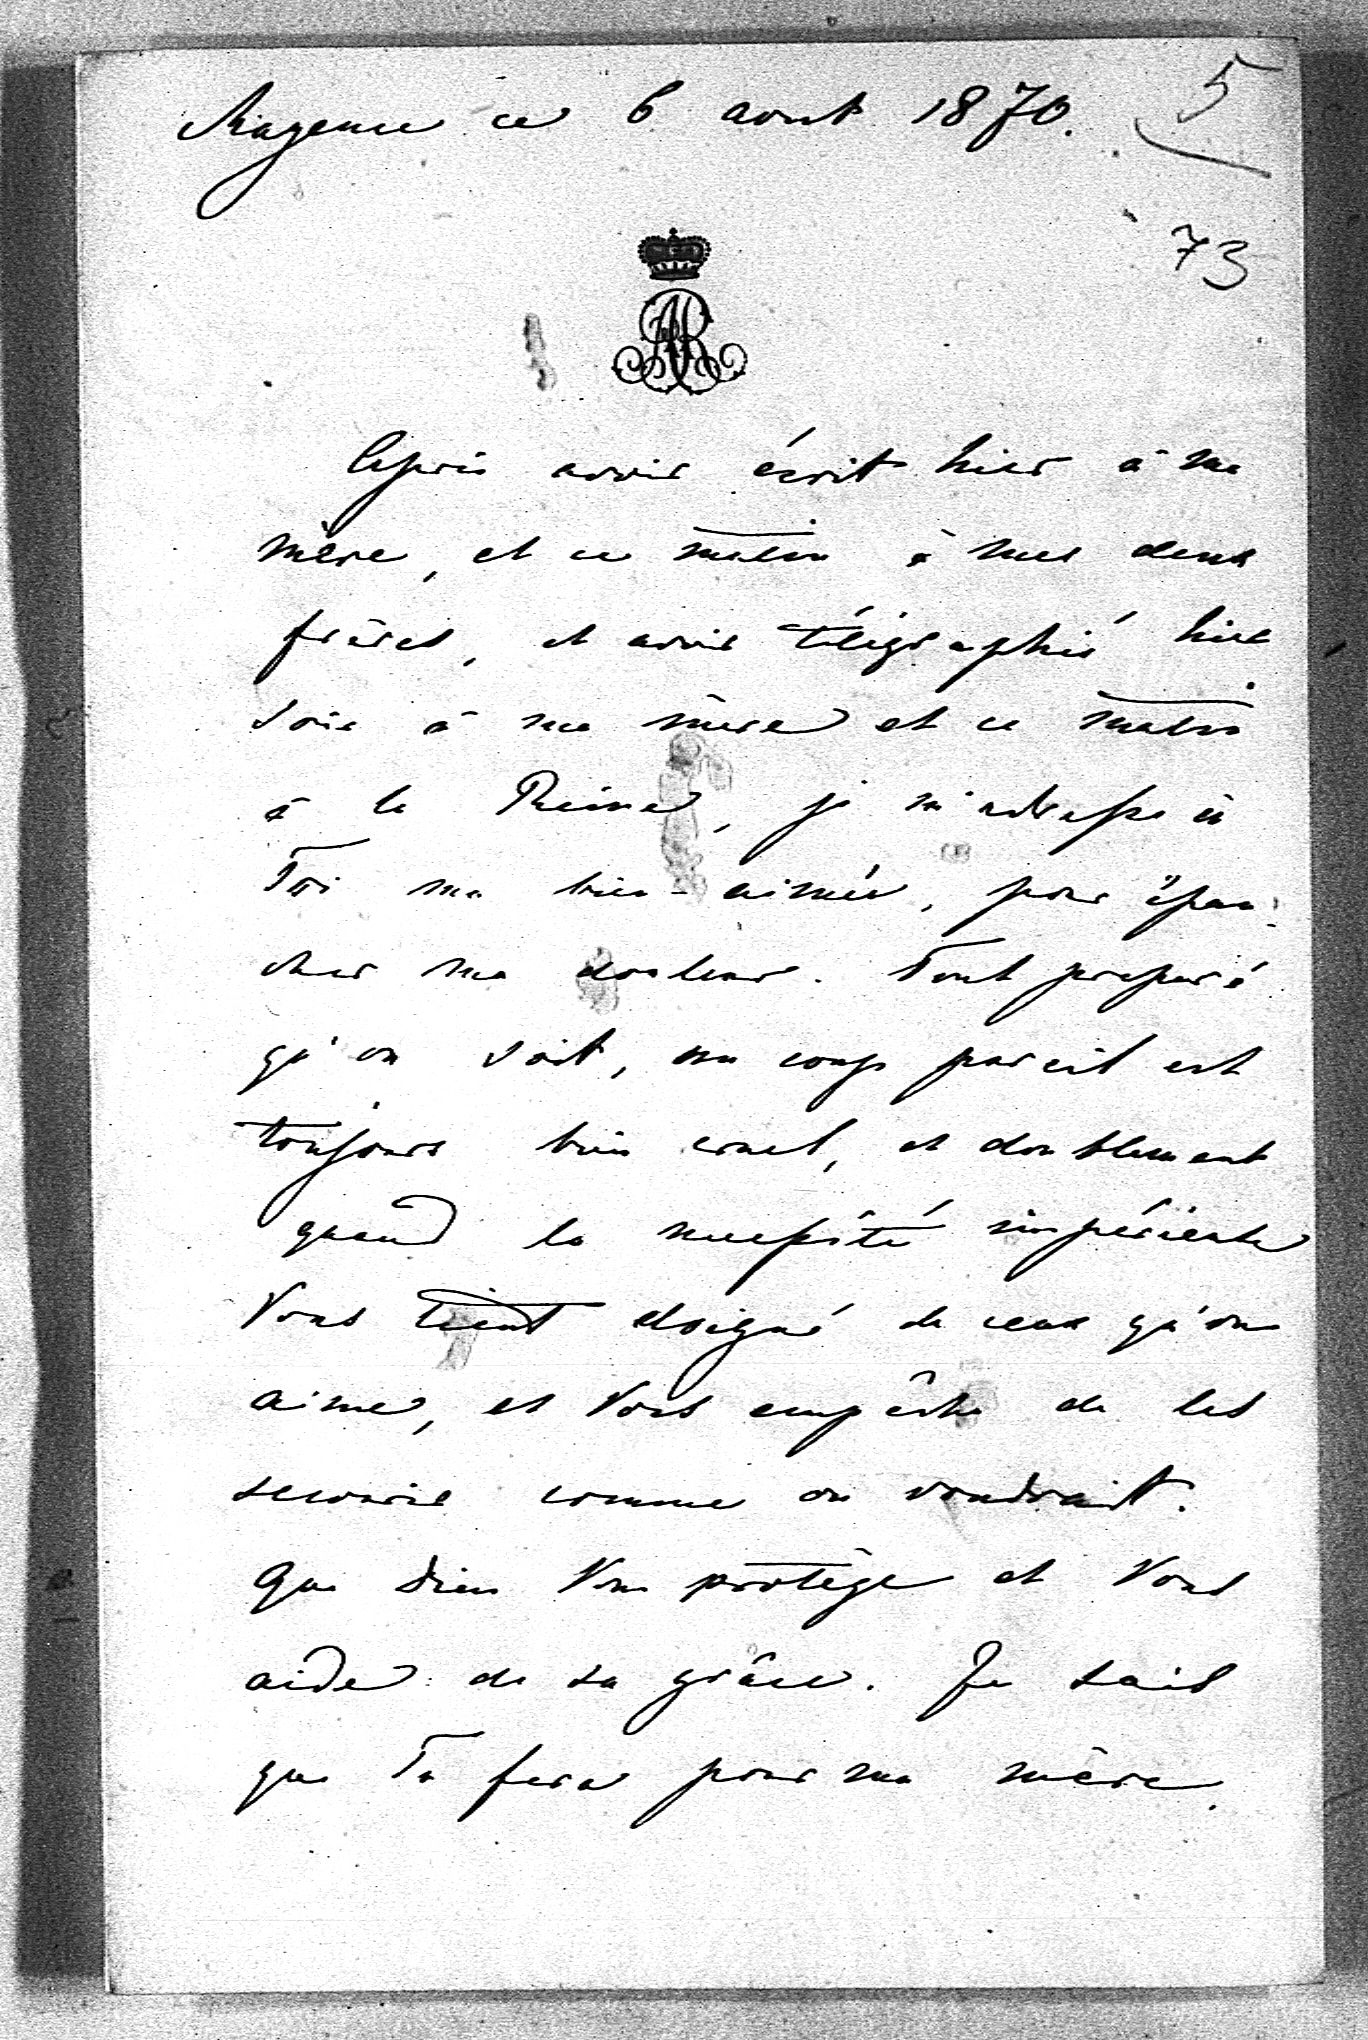 Mayence ce 6 aout 1870.
5
73
Après avoir écrit hier à ma
mère, et ce matin à mes deux
frères, et avoir télégraphié hier
soir à ma mère et ce matin
à la Reine, je m'adresse à
Toi ma bien-aimée, pour épan-
cher ma douleur. Tout préparé
qu'on soit, un coup pareil est
toujours bien cruel, et doublement
quand la necessité impérieuse
Vous tient eloigné de ceux qu'on
aime, et Vous empêche de les
secourir comme on voudrait.
Que Dieu Vous protège et Vous
aide de sa grâce. Je sais
que Tu fera pour ma mère